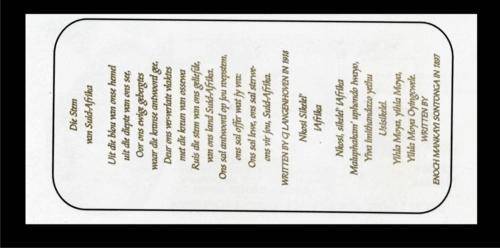 Die Stem
van Suid-Afrika
Uit die blou van onse hemel
uit die diepte van ons see,
Oor ons ewige gebergtes
waar die kranse antwoord gee,
Deur ons ver-verlate vlaktes
met die kreun van ossewa
Ruis die stem van ons geliefde,
van ons land Suid-Afrika.
Ons sal antwoord op jou roepstem,
ons sal offer wat jy vra:
Ons sal lewe, ons sal sterwe-
ons vir jou, Suid-Afrika.
WRITTEN BY CJ LANGENHOVEN IN 1918
Nkosi Sikelel'
iAfrika
Nkosi, sikelel' iAfrika
Maluphakam' uphondo lwayo,
Yiva imithandazo yethu
Usisikelel.
Yihla Moya, yihla Moya,
Yihla Moya Oyingcwele.
WRITTEN BY
ENOCH MANKAYI SONTONGA IN 1897